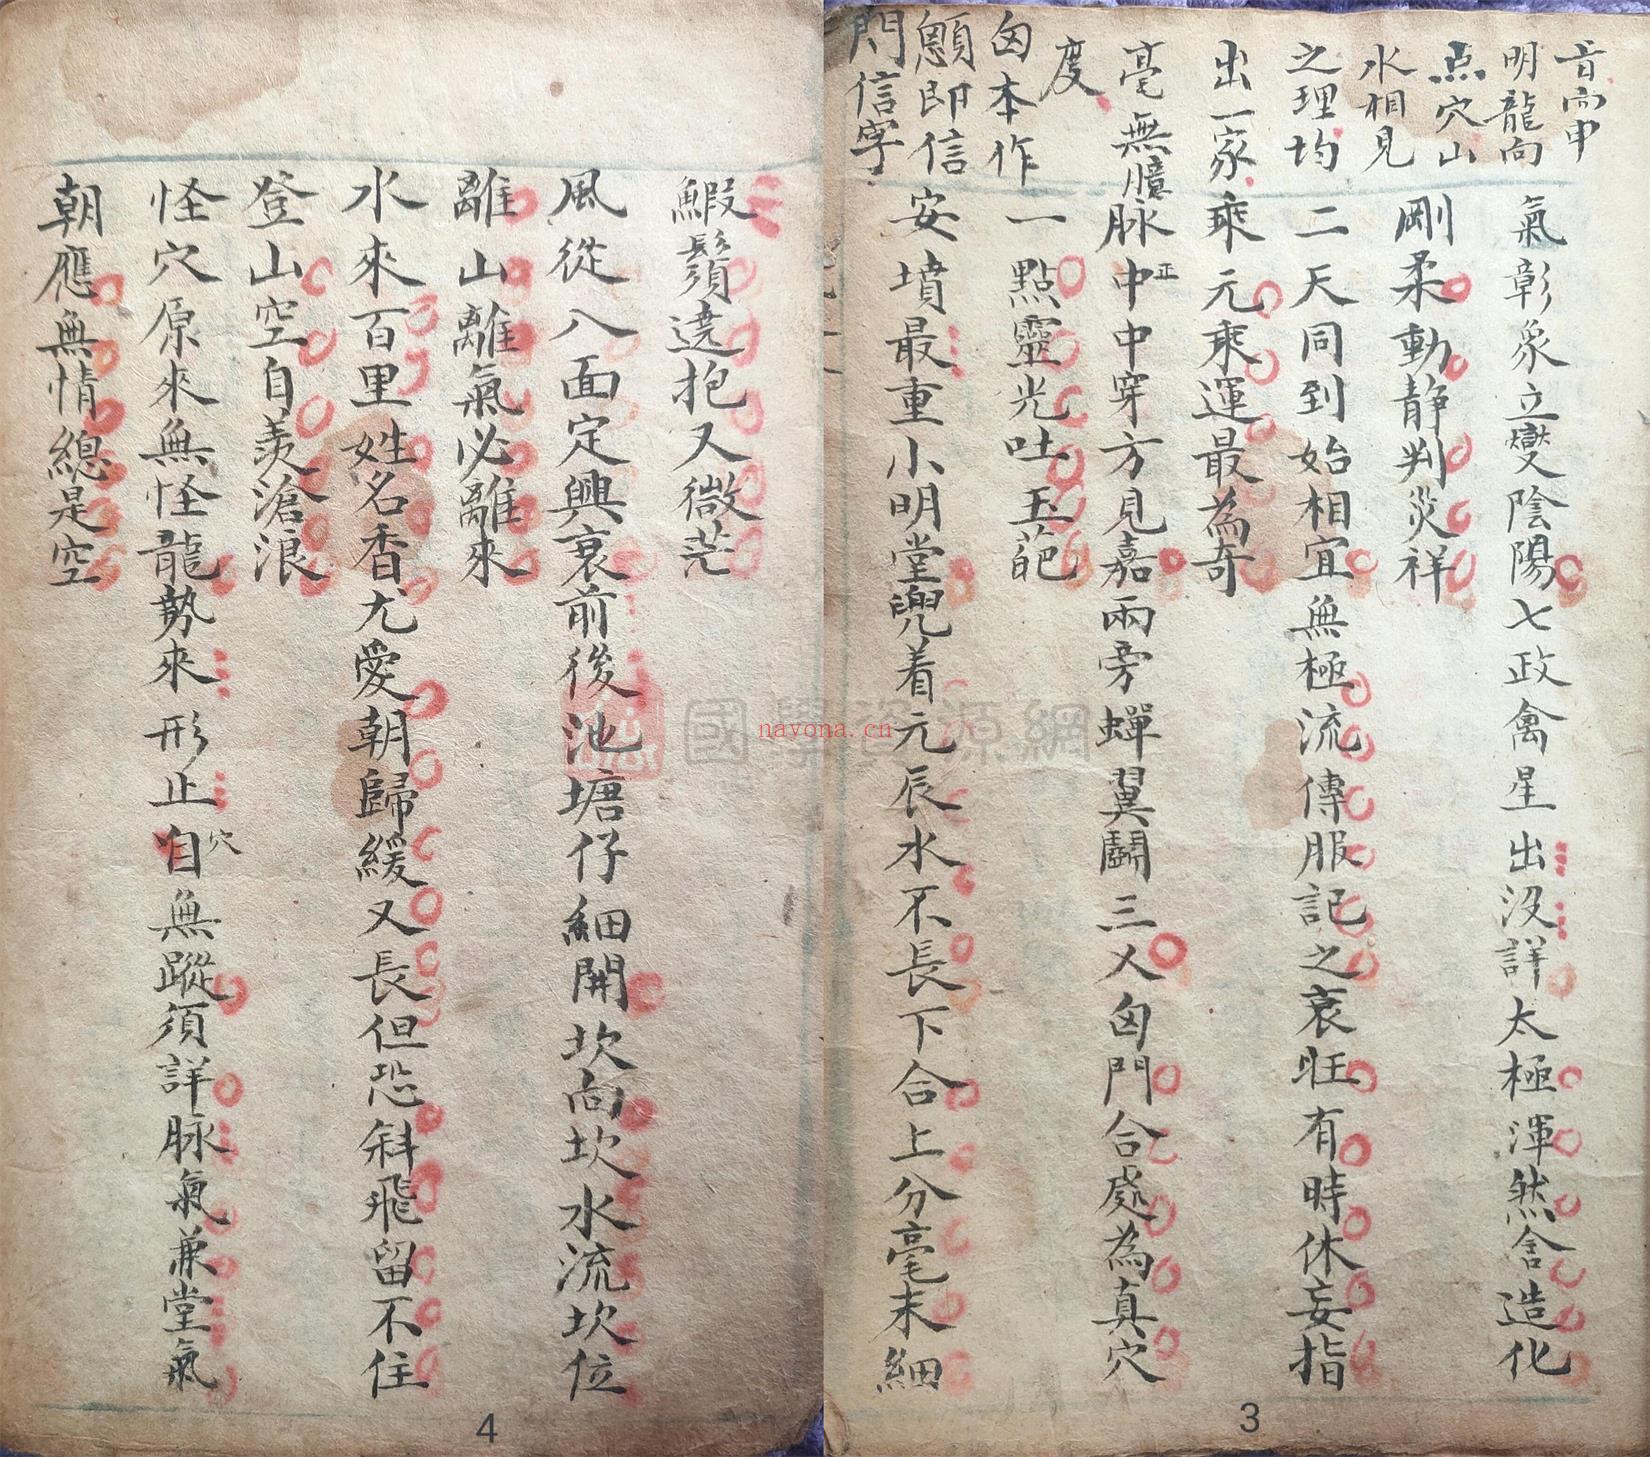 音宮申
明龍向
点穴山
水相見
之理均
出一家
毫無臆
度
囟本作
顖即信
門信字
氣彰象立變陰陽七政禽星出沒詳太極渾然含造化
剛柔動靜判災祥
二天同到始相宜無極流傳服記之衰旺有時休妄指
乘元乘運最為奇
脉中正中穿方見嘉兩旁蟬翼鬪三乂囟門合處為真穴
一點靈光吐玉葩
安墳最重小明堂兜着元辰水不長下合上分毫末細
3
鰕鬚遶抱又微茫
風從八面定興衰前後池塘仔細開坎向坎水流坎位
離山離氣必離來
水來百里姓名香尤愛朝歸緩又長但恐斜飛留不住
登山空自羨滄浪
怪穴原來無怪龍勢來形止自穴無蹤須詳脉氣兼堂氣
朝應無情總是空
4
國學資源網
nayona.cn